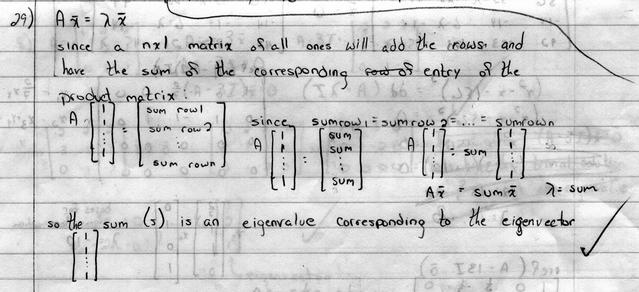 29) A x̄ = λ x̄
since a nx1 matrix of all ones will add the rows. and
have the sum of the corresponding row of entry of the
product matrix:
A [1 1 ⋮ 1] = [sum row1 sum row2 ⋮ sum rown] since sumrow1 = sumrow2 = ... = sumrown
A [1 1 ⋮ 1] = [sum sum ⋮ sum] A [1 1 ⋮ 1] = sum [1 1 ⋮ 1]
A x̄ = sum x̄ λ = sum
so the sum (s) is an eigenvalue corresponding to the eigenvector
[1 1 ⋮ 1]